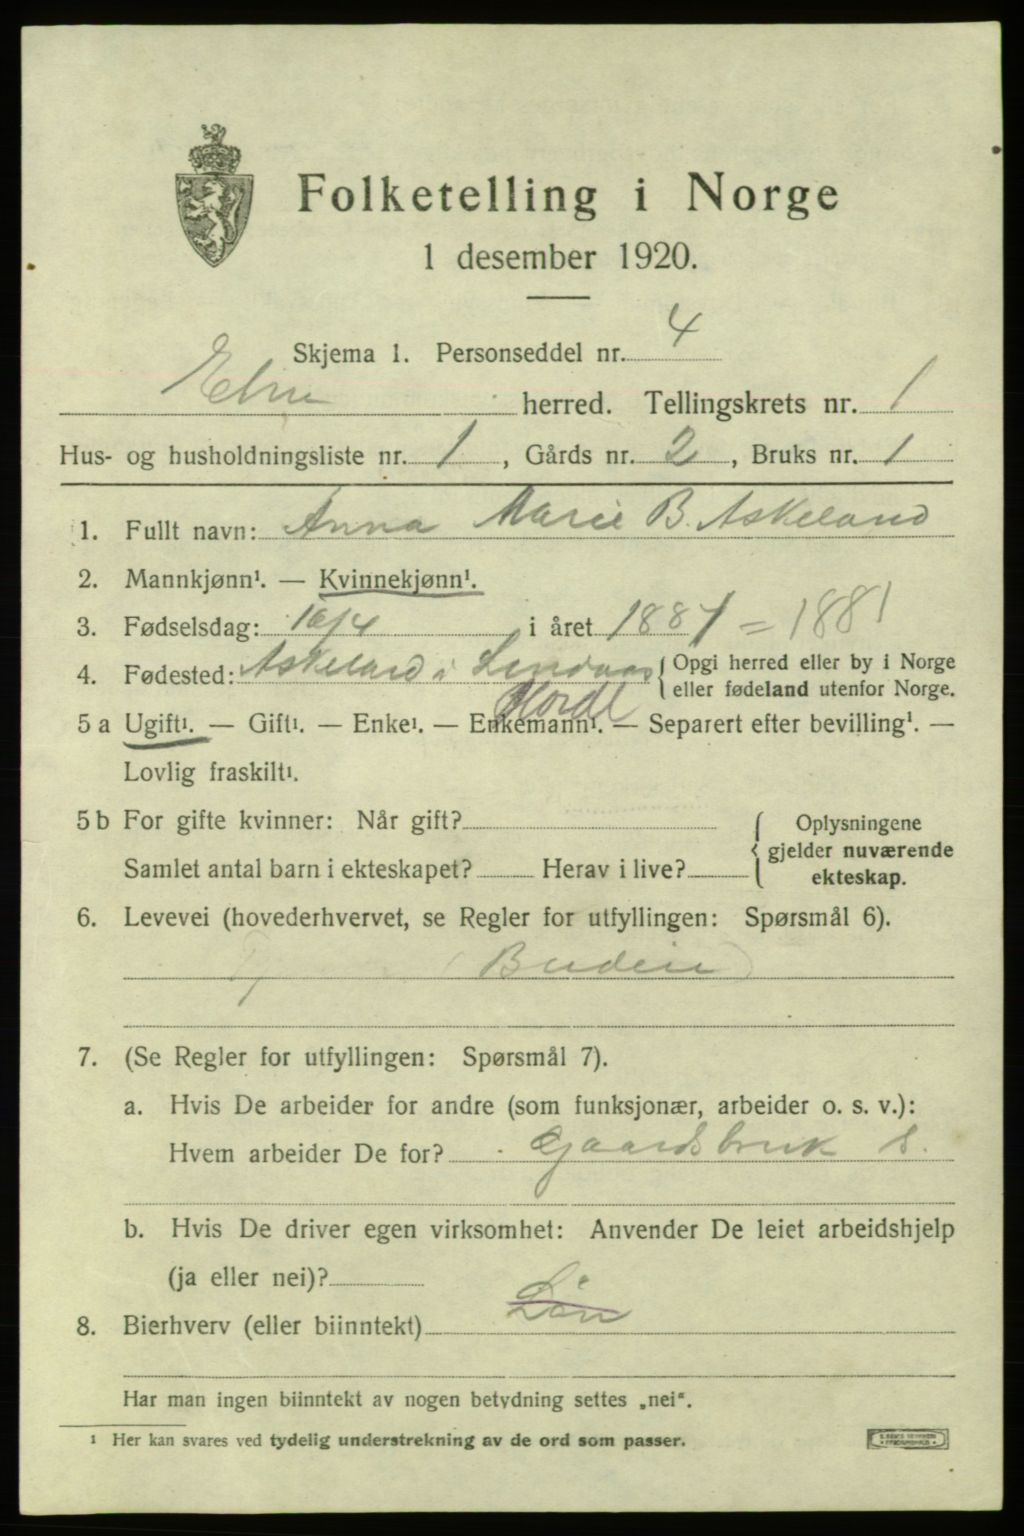 Folketelling i Norge
1 desember 1920.
Skjema 1. Personseddel nr. 4
herred. Tellingskrets nr. 1
Hus- og husholdningsliste nr. 1, Gårds nr. 2, Bruks nr. 1
1. Fullt navn: Anna Marie B. Askeland
2. Mannkjønn¹. — Kvinnekjønn¹.
3. Fødselsdag: 16/4 i året 1881 = 1881
4. Fødested: Askeland i Lindaas { Opgi herred eller by i Norge
eller fødeland utenfor Norge.
Hordl
5 a Ugift¹. — Gift¹. — Enke¹. — Enkemann¹. — Separert efter bevilling¹. —
Lovlig fraskilt¹.
5 b For gifte kvinner: Når gift? { Oplysningene
Samlet antal barn i ekteskapet? Herav i live? gjelder nuværende
ekteskap.
6. Levevei (hovederhvervet, se Regler for utfyllingen: Spørsmål 6).
Budeie
7. (Se Regler for utfyllingen: Spørsmål 7).
a. Hvis De arbeider for andre (som funksjonær, arbeider o. s. v.):
Hvem arbeider De for? Gaardsbruk s.
b. Hvis De driver egen virksomhet: Anvender De leiet arbeidshjelp
(ja eller nei)?
8. Bierhverv (eller biinntekt) Løn
Har man ingen biinntekt av nogen betydning settes „nei“.
¹ Her kan svares ved tydelig understrekning av de ord som passer.